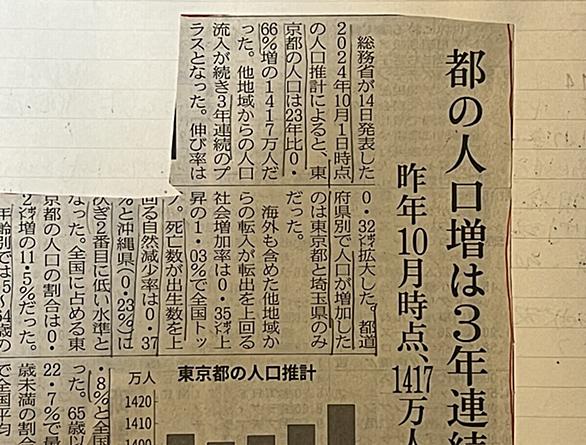 都の人口増は3年連続
昨年10月時点、1417万人
総務省が14日発表した
2024年10月1日時点
の人口推計によると、東
京都の人口は23年比0・
66%増の1417万人だ
った。他地域からの人口
流入が続き3年連続のプ
ラスとなった。伸び率は
0・32㌽拡大した。都道
府県別で人口が増加した
のは東京都と埼玉県のみ
だった。
海外も含めた他地域か
らの転入が転出を上回る
社会増加率は0・35㌽上
昇の1・03%で全国トッ
プ。死亡数が出生数を上
回る自然減少率は0・37
%と沖縄県(0・23%)に
次ぎ2番目に低い水準と
なった。全国に占める東
京都の人口の割合は0・
2㌽増の11・5%だった。
年齢別では15〜64歳の
・8%と全国
った。65歳以
22・7%で
歳未満の割合
で全国平均
東京都の人口推計
万人
1420
1410
1400